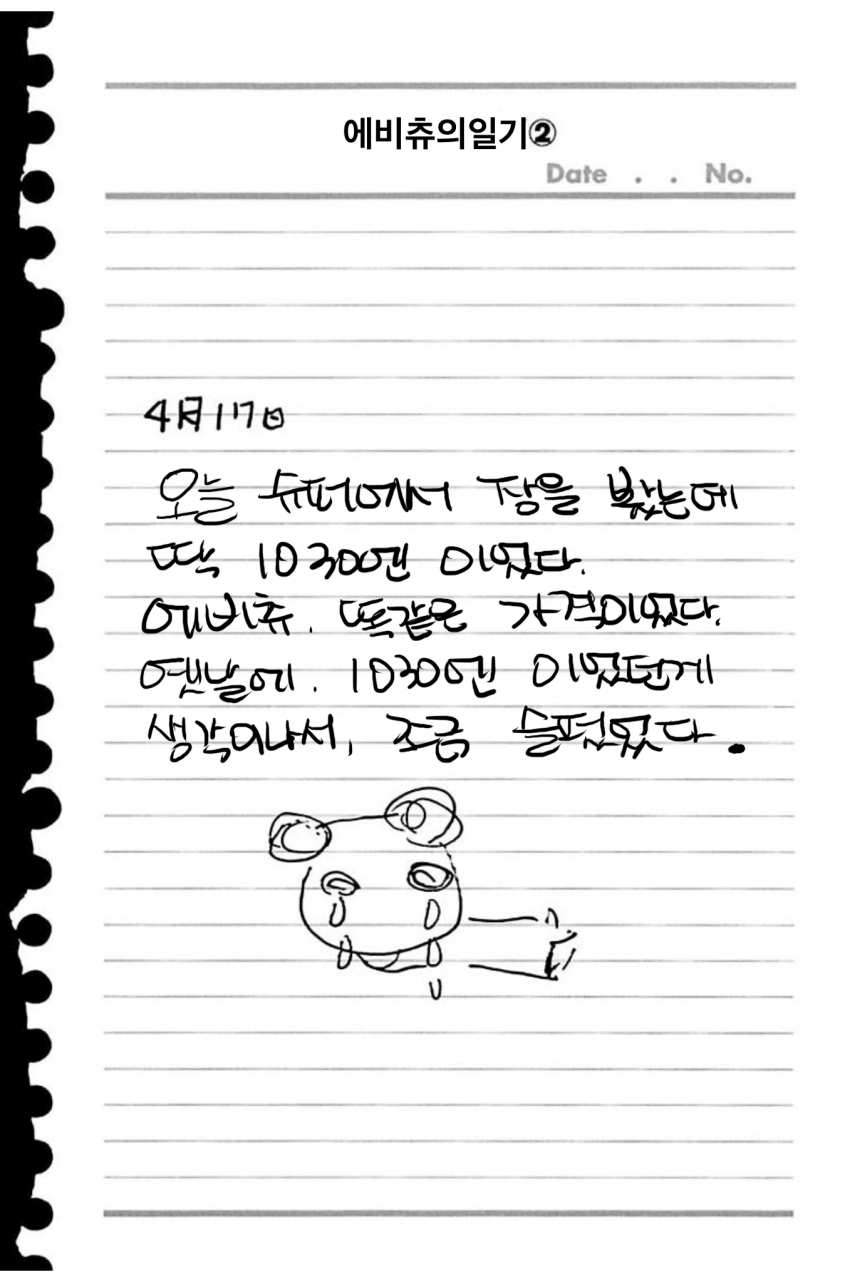 에비츄의일기②
Date . . No.
4月17日
오늘 슈퍼에서 장을 봤는데
딱 1030엔 이었다.
에비츄. 똑같은 가격이었다.
옛날에. 1030엔 이었던게
생각이나서, 조금 슬펐었다.